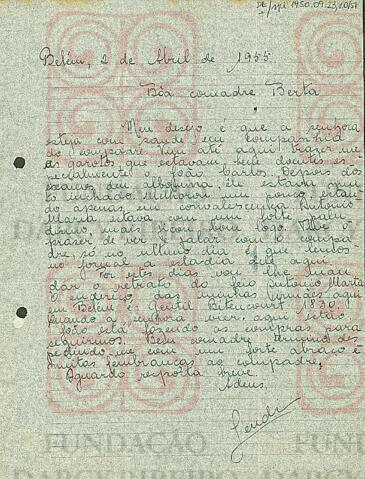 Belém, 2 de Abril de 1955
Bôa comadre Berta
Meu desejo é que a senhora
esteja com saúde em companhia
do compadre. Vim até aqui trazer-me
os garotos que estavam bem doentes es-
pecialmente o João Carlos. Depois dos
exames deu albumina, ele estava mui-
to inchado. Melhorou um pouco, estan-
do apenas em convalescença. Antonio
Maria estava com um forte palu-
dismo, mais ficou bom logo. Tive o
praser de ver e falar com o compa-
dre, só no ultimo dia é que
no jornal a estadia dele aqui.
Por estes dias vou lhe man-
dar o retrato do feio Antonio Maria
O endereço das minhas irmães aqui
em Belém é Gentil Bitencourt 1230.
quando a senhora vier aqui
João está fazendo as compras para
seguirmos. Bem comadre termino des-
pedindo-me com um forte abraço e
muitas lembranças ao compadre,
Aguardo resposta breve.
Adeus.
FUNDAÇÃO
DARCY RIBEIRO